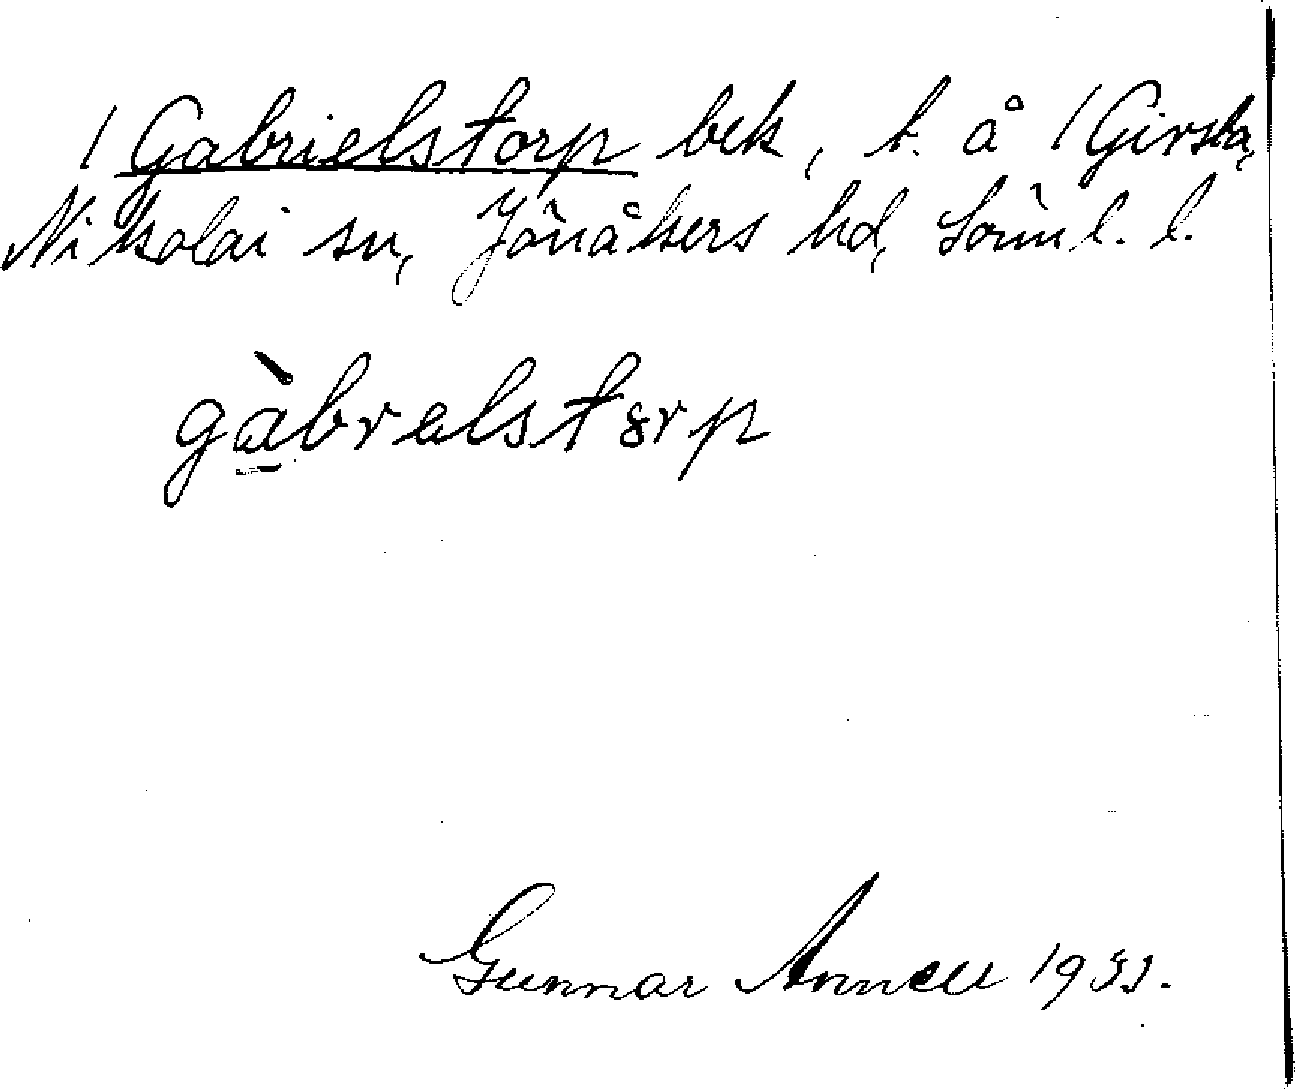 / Gabrielstorp bek, t. å / Girsta,
Nikolai sn, Jönåkers hd, Sörml. l.
gàbrelstorp
Gunnar Annell 1933.